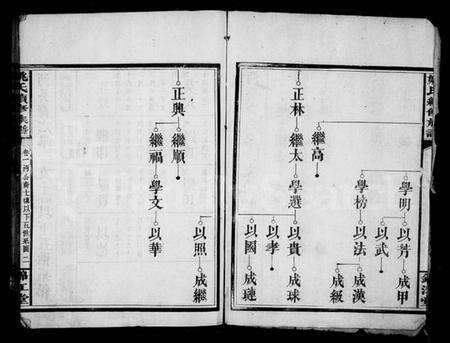 姚氏續修族譜
學明
以芳
成甲
以武
學榜
以法
成漢
成級
繼高
正林
繼太
學選
以貴
成球
以孝
以國
成璉
正興
繼順
繼福
學文
以照
成繼
以華
姚氏續修族譜
卷一
以下五世系圖
二
錦江堂